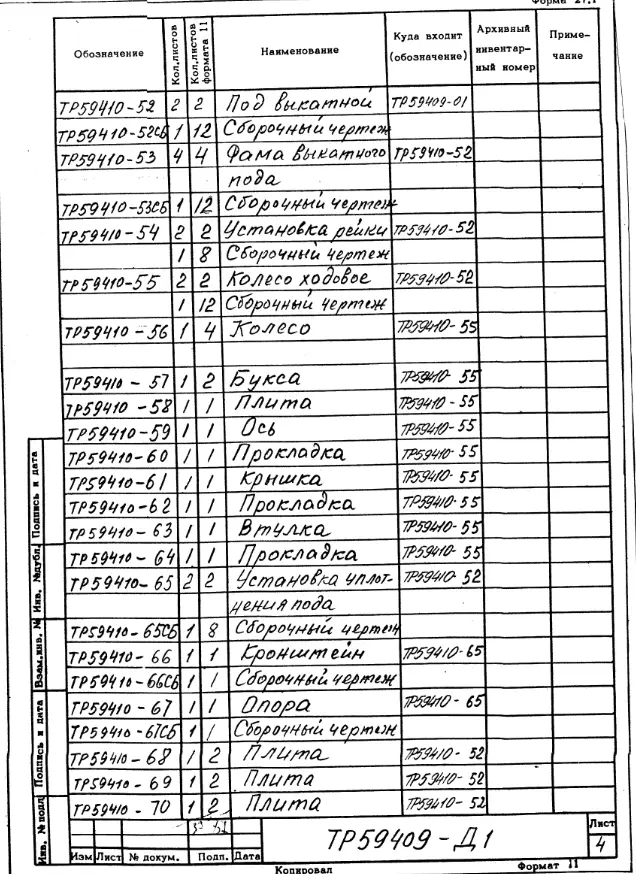 Форма 27.1
Обозначение Кол.листов Кол.листов формата 11 Наименование Куда входит (обозначение) Архивный инвентар-ный номер Приме-чание
ТР59410-52 2 2 Под выкатной ТР59409-01
ТР59410-52СБ 1 12 Сборочный чертеж
ТР59410-53 4 4 Фама выкатного ТР59410-52
пода
ТР59410-53СБ 1 12 Сборочный чертеж
ТР59410-54 2 2 Установка рейки ТР59410-52
1 8 Сборочный чертеж
ТР59410-55 2 2 Колесо ходовое ТР59410-52
1 12 Сборочный чертеж
ТР59410-56 1 4 Колесо ТР59410-55
ТР59410-57 1 2 Букса ТР59410-55
ТР59410-58 1 1 Плита ТР59410-55
ТР59410-59 1 1 Ось ТР59410-55
ТР59410-60 1 1 Прокладка ТР59410-55
ТР59410-61 1 1 Крышка ТР59410-55
ТР59410-62 1 1 Прокладка ТР59410-55
ТР59410-63 1 1 Втулка ТР59410-55
ТР59410-64 1 1 Прокладка ТР59410-55
ТР59410-65 2 2 Установка уплот- ТР59410-52
нения пода
ТР59410-65СБ 1 8 Сборочный чертеж
ТР59410-66 1 1 Кронштейн ТР59410-65
ТР59410-66СБ 1 1 Сборочный чертеж
ТР59410-67 1 1 Опора ТР59410-65
ТР59410-67СБ 1 1 Сборочный чертеж
ТР59410-68 1 2 Плита ТР59410-52
ТР59410-69 1 2 Плита ТР59410-52
ТР59410-70 1 2 Плита ТР59410-52
Инв. № подл. Подпись и дата Взам.инв. № Инв. №дубл. Подпись и дата
Изм Лист № докум. Подп. Дата
ТР59409-Д1
Лист
4
Копировал Формат 11